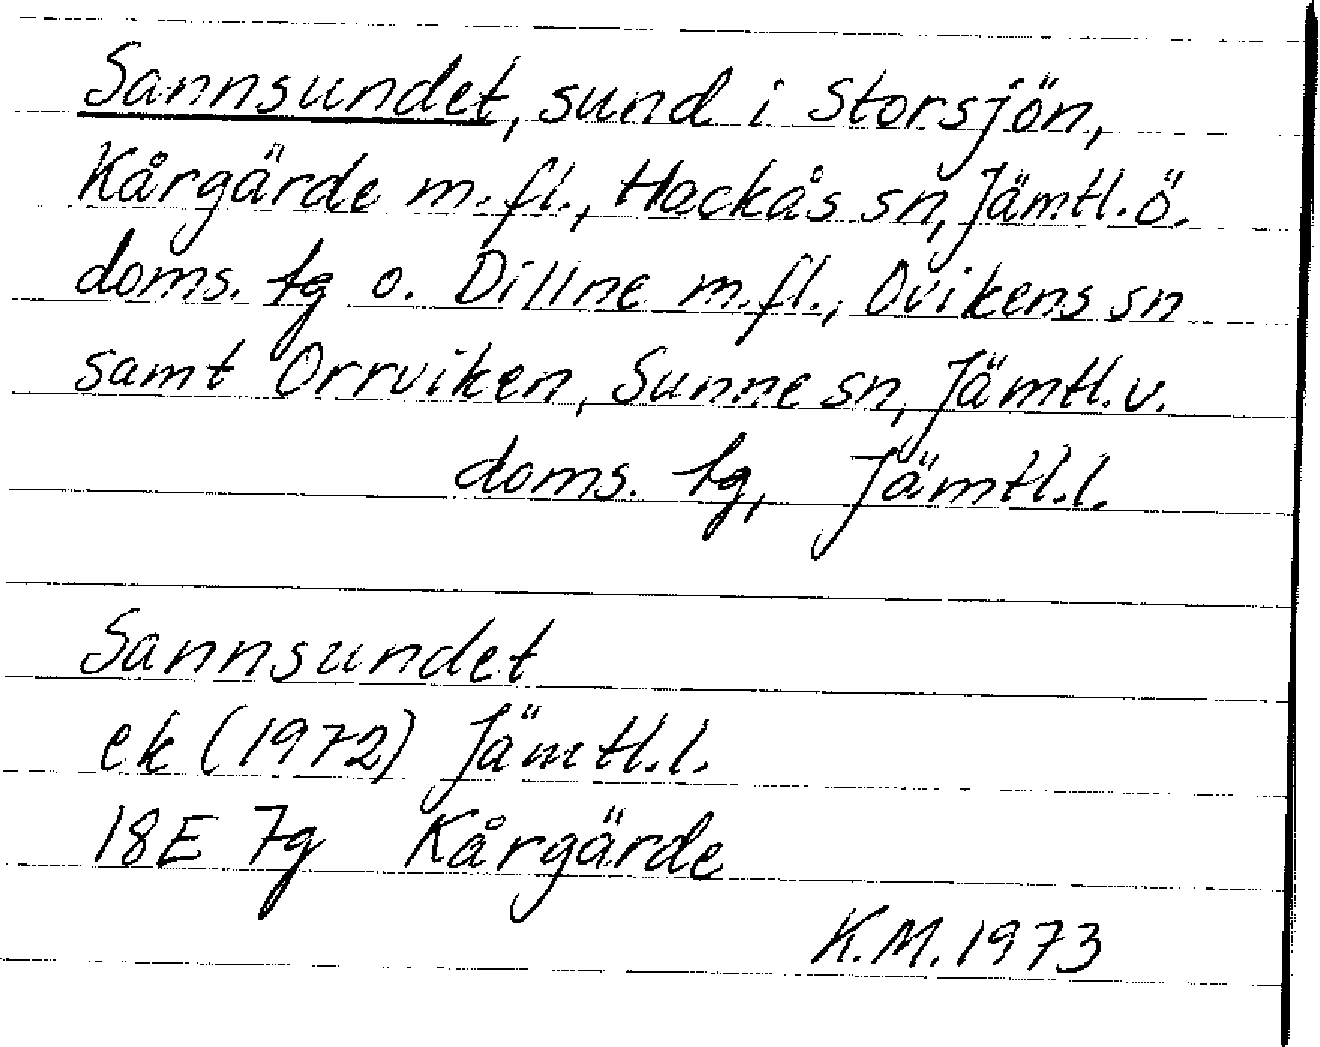 Sannsundet, sund i Storsjön,
Kårgärde m.fl., Hackås sn, Jämtl.ö.
doms. tg o. Dillne m.fl., Ovikens sn
samt Orrviken, Sunne sn, Jämtl.v.
doms. tg, Jämtl.l.
Sannsundet
ek (1972) Jämtl.l.
18E 7g Kårgärde
K.M.1973